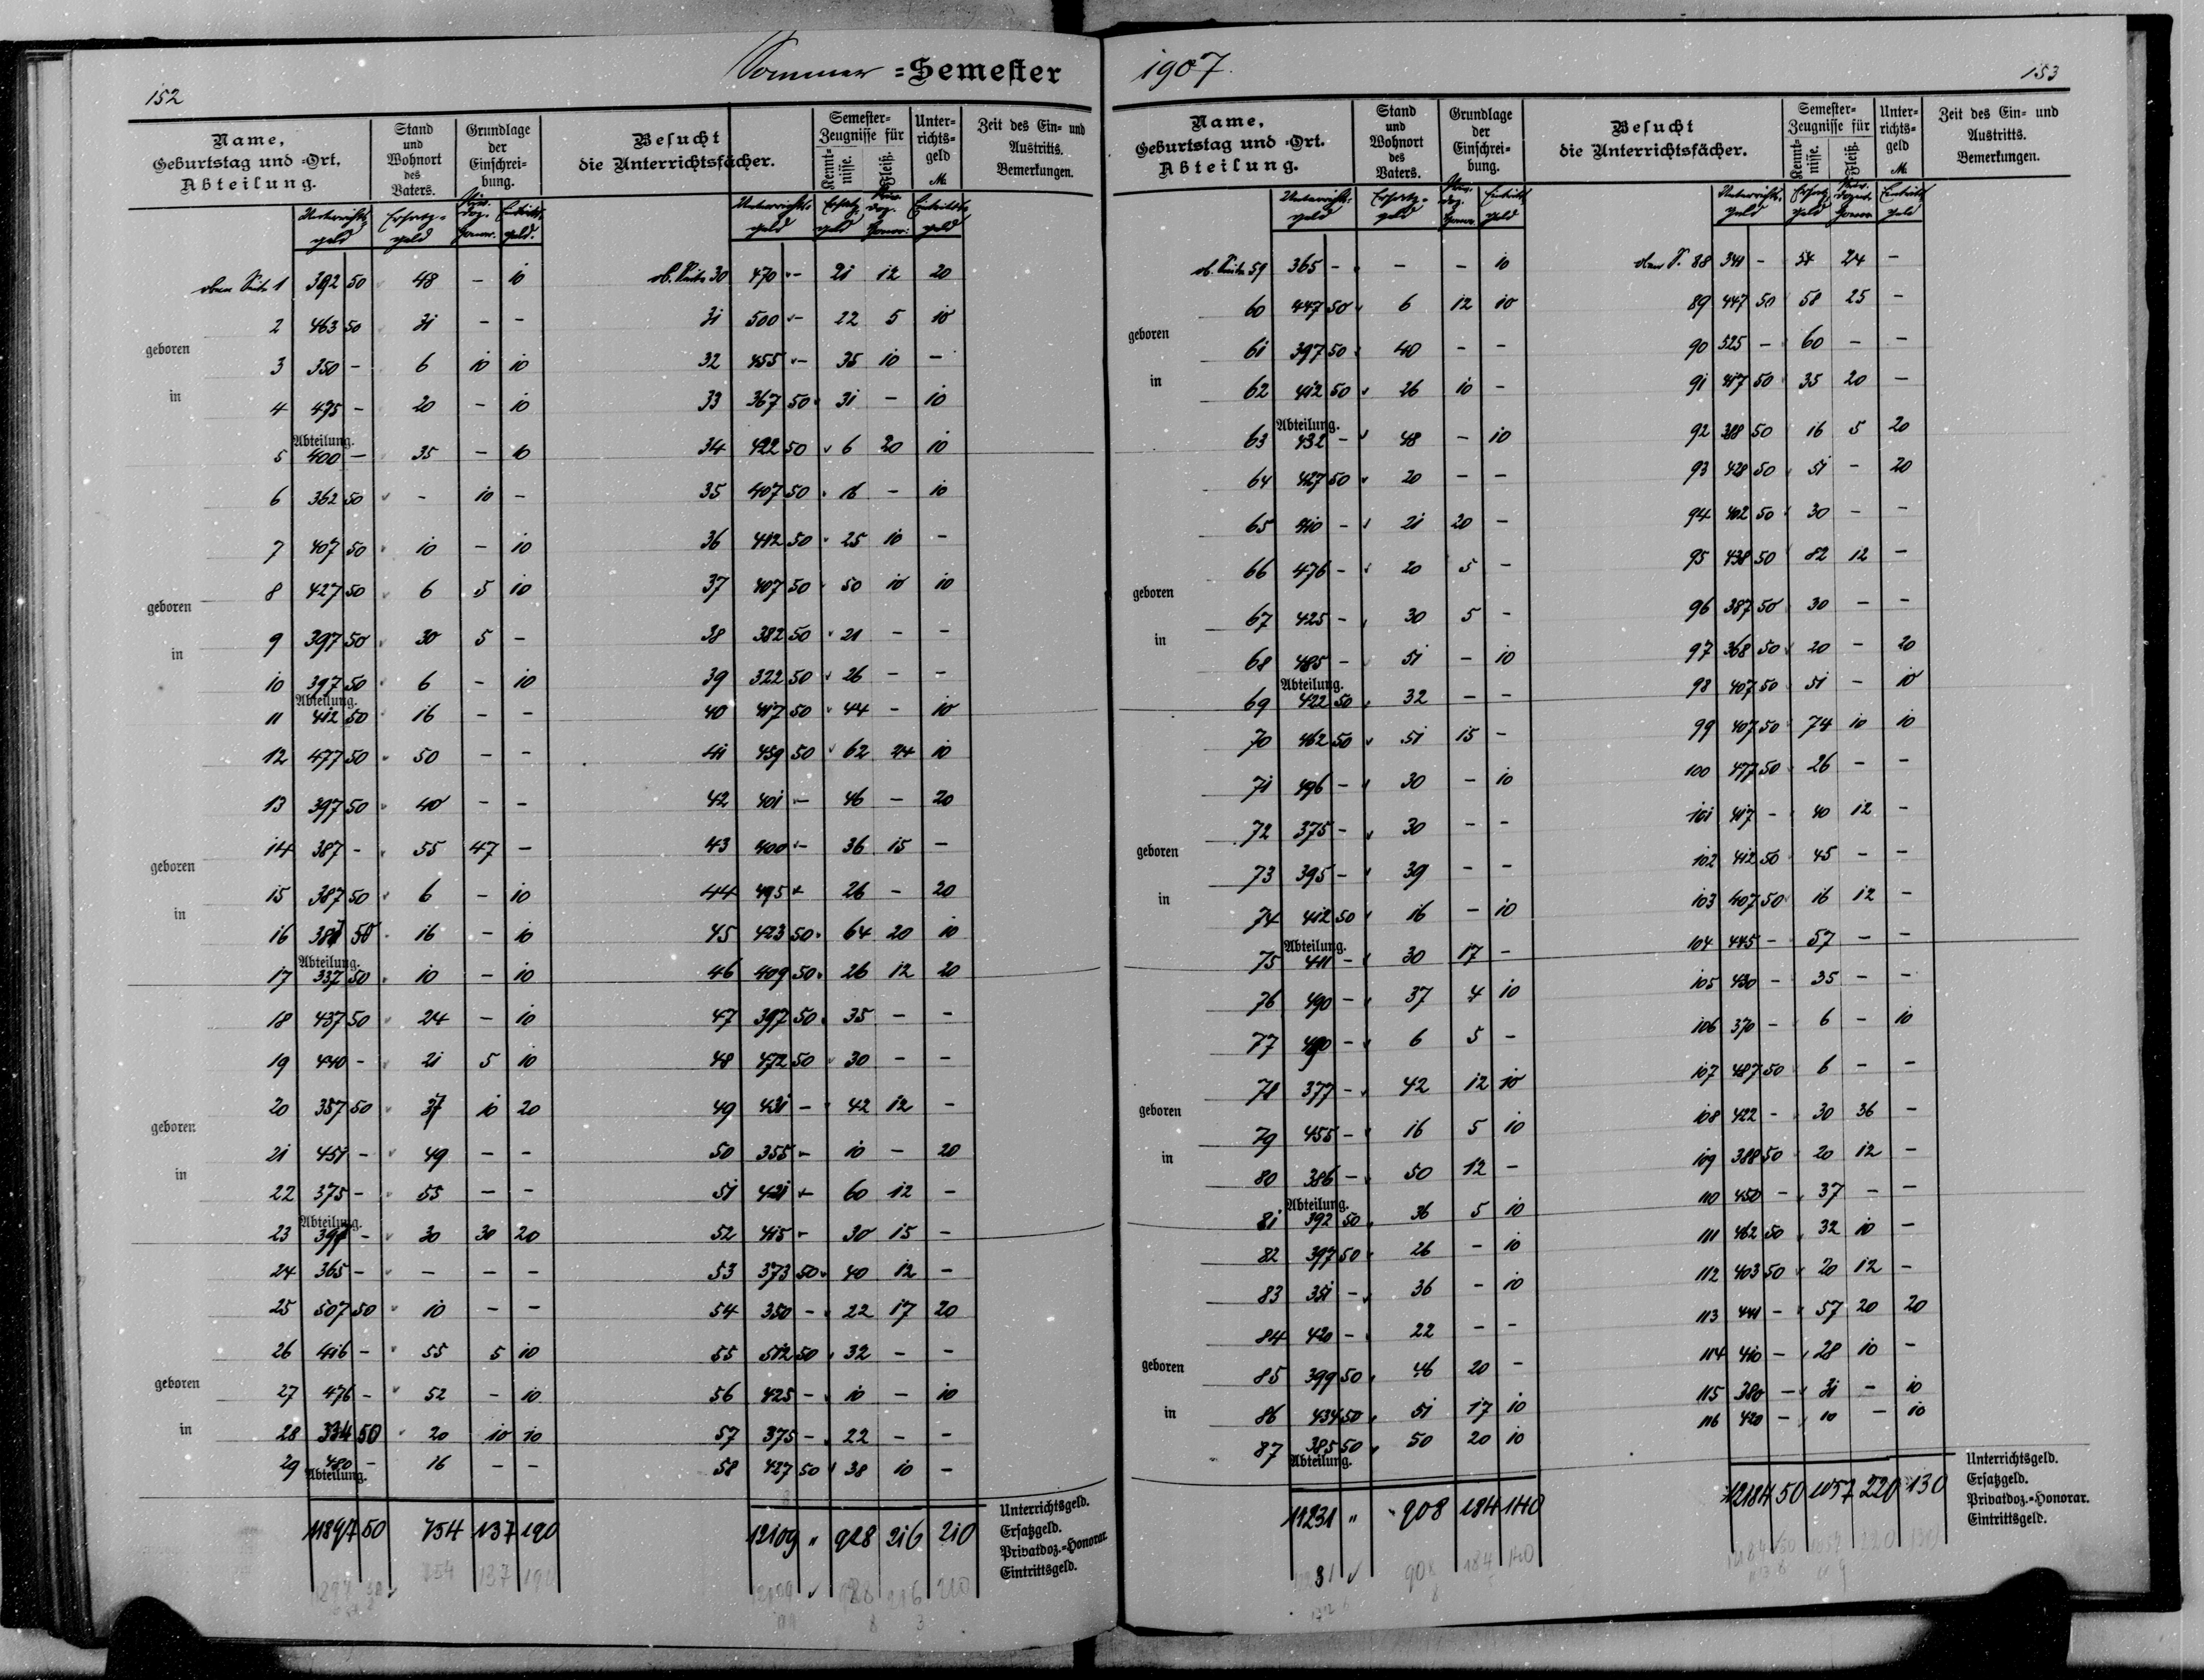 152
Sommer = Semester
Name,
Geburtstag und =Ort,
Abteilung.
Stand
und
Wohnort
des
Vaters.
Grundlage
der
Einschrei=
bung.
Besucht
die Unterrichtsfächer.
Semester=
Zeugnisse für
Kennt=
nisse.
Fleiß.
Unter=
richts=
geld
M.
Zeit des Ein= und
Austritts.
Bemerkungen.
Unterrichts
geld
Ersatz=
geld
Honor.
Eintritts
geld.
Unterrichts=
geld
Ersatz
geld
Honor:
Eintritts
geld
1 392 50 48 – 10
2 463 50 31 – –
3 350 – 6 10 10
4 475 – 20 – 10
5 400 – 35 – 10
6 362 50 – 10 –
7 407 50 10 – 10
8 427 50 6 5 10
9 397 50 30 5 –
10 397 50 6 – 10
11 412 50 16 – –
12 477 50 50 – –
13 397 50 40 – –
14 387 – 55 47 –
15 387 50 6 – 10
16 387 50 16 – 10
17 337 50 10 – 10
18 437 50 24 – 10
19 440 – 21 5 10
20 357 50 37 10 20
21 451 – 49 – –
22 375 – 55 – –
23 – 30 30 20
24 365 – – – –
25 507 50 10 – –
26 416 – 55 5 10
27 476 – 52 – 10
28 334 50 20 10 10
29 480 – 16 – –
11897 50 754 137 190
geboren
in
Abteilung.
geboren
in
Abteilung.
geboren
in
Abteilung.
geboren
in
Abteilung.
geboren
in
Abteilung.
ob. Seite 30 470 – 21 12 20
31 500 – 22 5 10
32 455 – 35 10 –
33 367 50 31 – 10
34 422 50 6 20 10
35 407 50 16 – 10
36 412 50 25 10 –
37 407 50 50 10 10
38 382 50 21 – –
39 322 50 26 – –
40 417 50 44 – 10
41 459 50 62 24 10
42 401 – 46 – 20
43 400 – 36 15 –
44 495 – 26 – 20
45 423 50 64 20 10
46 409 50 26 12 20
47 397 50 35 – –
48 472 50 30 – –
49 431 – 42 12 –
50 355 – 10 – 20
51 421 – 60 12 –
52 415 – 30 15 –
53 373 50 40 12 –
54 350 – 22 17 20
55 512 50 32 – –
56 425 – 10 – 10
57 375 – 22 – –
58 427 50 38 10 –
12109 " 928 216 210
Unterrichtsgeld.
Ersatzgeld.
Privatdoz.=Honorar.
Eintrittsgeld.
1907.
153
Name,
Geburtstag und =Ort.
Abteilung.
Stand
und
Wohnort
des
Vaters.
Grundlage
der
Einschrei=
bung.
Besucht
die Unterrichtsfächer.
Semester=
Zeugnisse für
Kennt=
nisse.
Fleiß.
Unter=
richts=
geld
M.
Zeit des Ein= und
Austritts.
Bemerkungen.
Unterrichts=
geld
Ersatz=
geld
Honor.
Eintritts
geld
Unterrichts
geld
Ersatz
geld
Honor
Eintritts
geld
ob. Seite 59 365 – – – 10
60 447 50 6 12 10
61 397 50 40 – –
62 412 50 26 10 –
63 432 – 48 – 10
64 427 50 20 – –
65 410 – 21 20 –
66 476 – 20 5 –
67 425 – 30 5 –
68 485 – 51 – 10
69 422 50 32 – –
70 462 50 51 15 –
71 496 – 30 – 10
72 375 – 30 – –
73 395 – 39 – –
74 412 50 16 – 10
75 411 – 30 17 –
76 490 – 37 4 10
77 – 6 5 –
78 377 – 42 12 10
79 455 – 16 5 10
80 386 – 50 12 –
81 392 50 36 5 10
82 397 50 26 – 10
83 351 – 36 – 10
84 420 – 22 – –
85 399 50 46 20 –
86 434 50 51 17 10
87 385 50 50 20 10
12231 " 908 184 140
geboren
in
Abteilung.
geboren
in
Abteilung.
geboren
in
Abteilung.
geboren
in
Abteilung.
geboren
in
Abteilung.
88 341 – 54 24 –
89 447 50 58 25 –
90 525 – 60 – –
91 417 50 35 20 –
92 388 50 16 5 20
93 428 50 51 – 20
94 402 50 30 – –
95 438 50 82 12 –
96 387 50 30 – –
97 368 50 20 – 20
98 407 50 51 – 10
99 407 50 74 10 10
100 477 50 26 – –
101 417 – 40 12 –
102 412 50 45 – –
103 407 50 16 12 –
104 445 – 57 – –
105 430 – 35 – –
106 370 – 6 – 10
107 487 50 6 – –
108 422 – 30 36 –
109 388 50 20 12 –
110 450 – 37 – –
111 462 50 32 10 –
112 403 50 20 12 –
113 441 – 57 20 20
114 410 – 28 10 –
115 380 – 31 – 10
116 420 – 10 – 10
12184 50 1057 220 130
Unterrichtsgeld.
Ersatzgeld.
Privatdoz.=Honorar.
Eintrittsgeld.